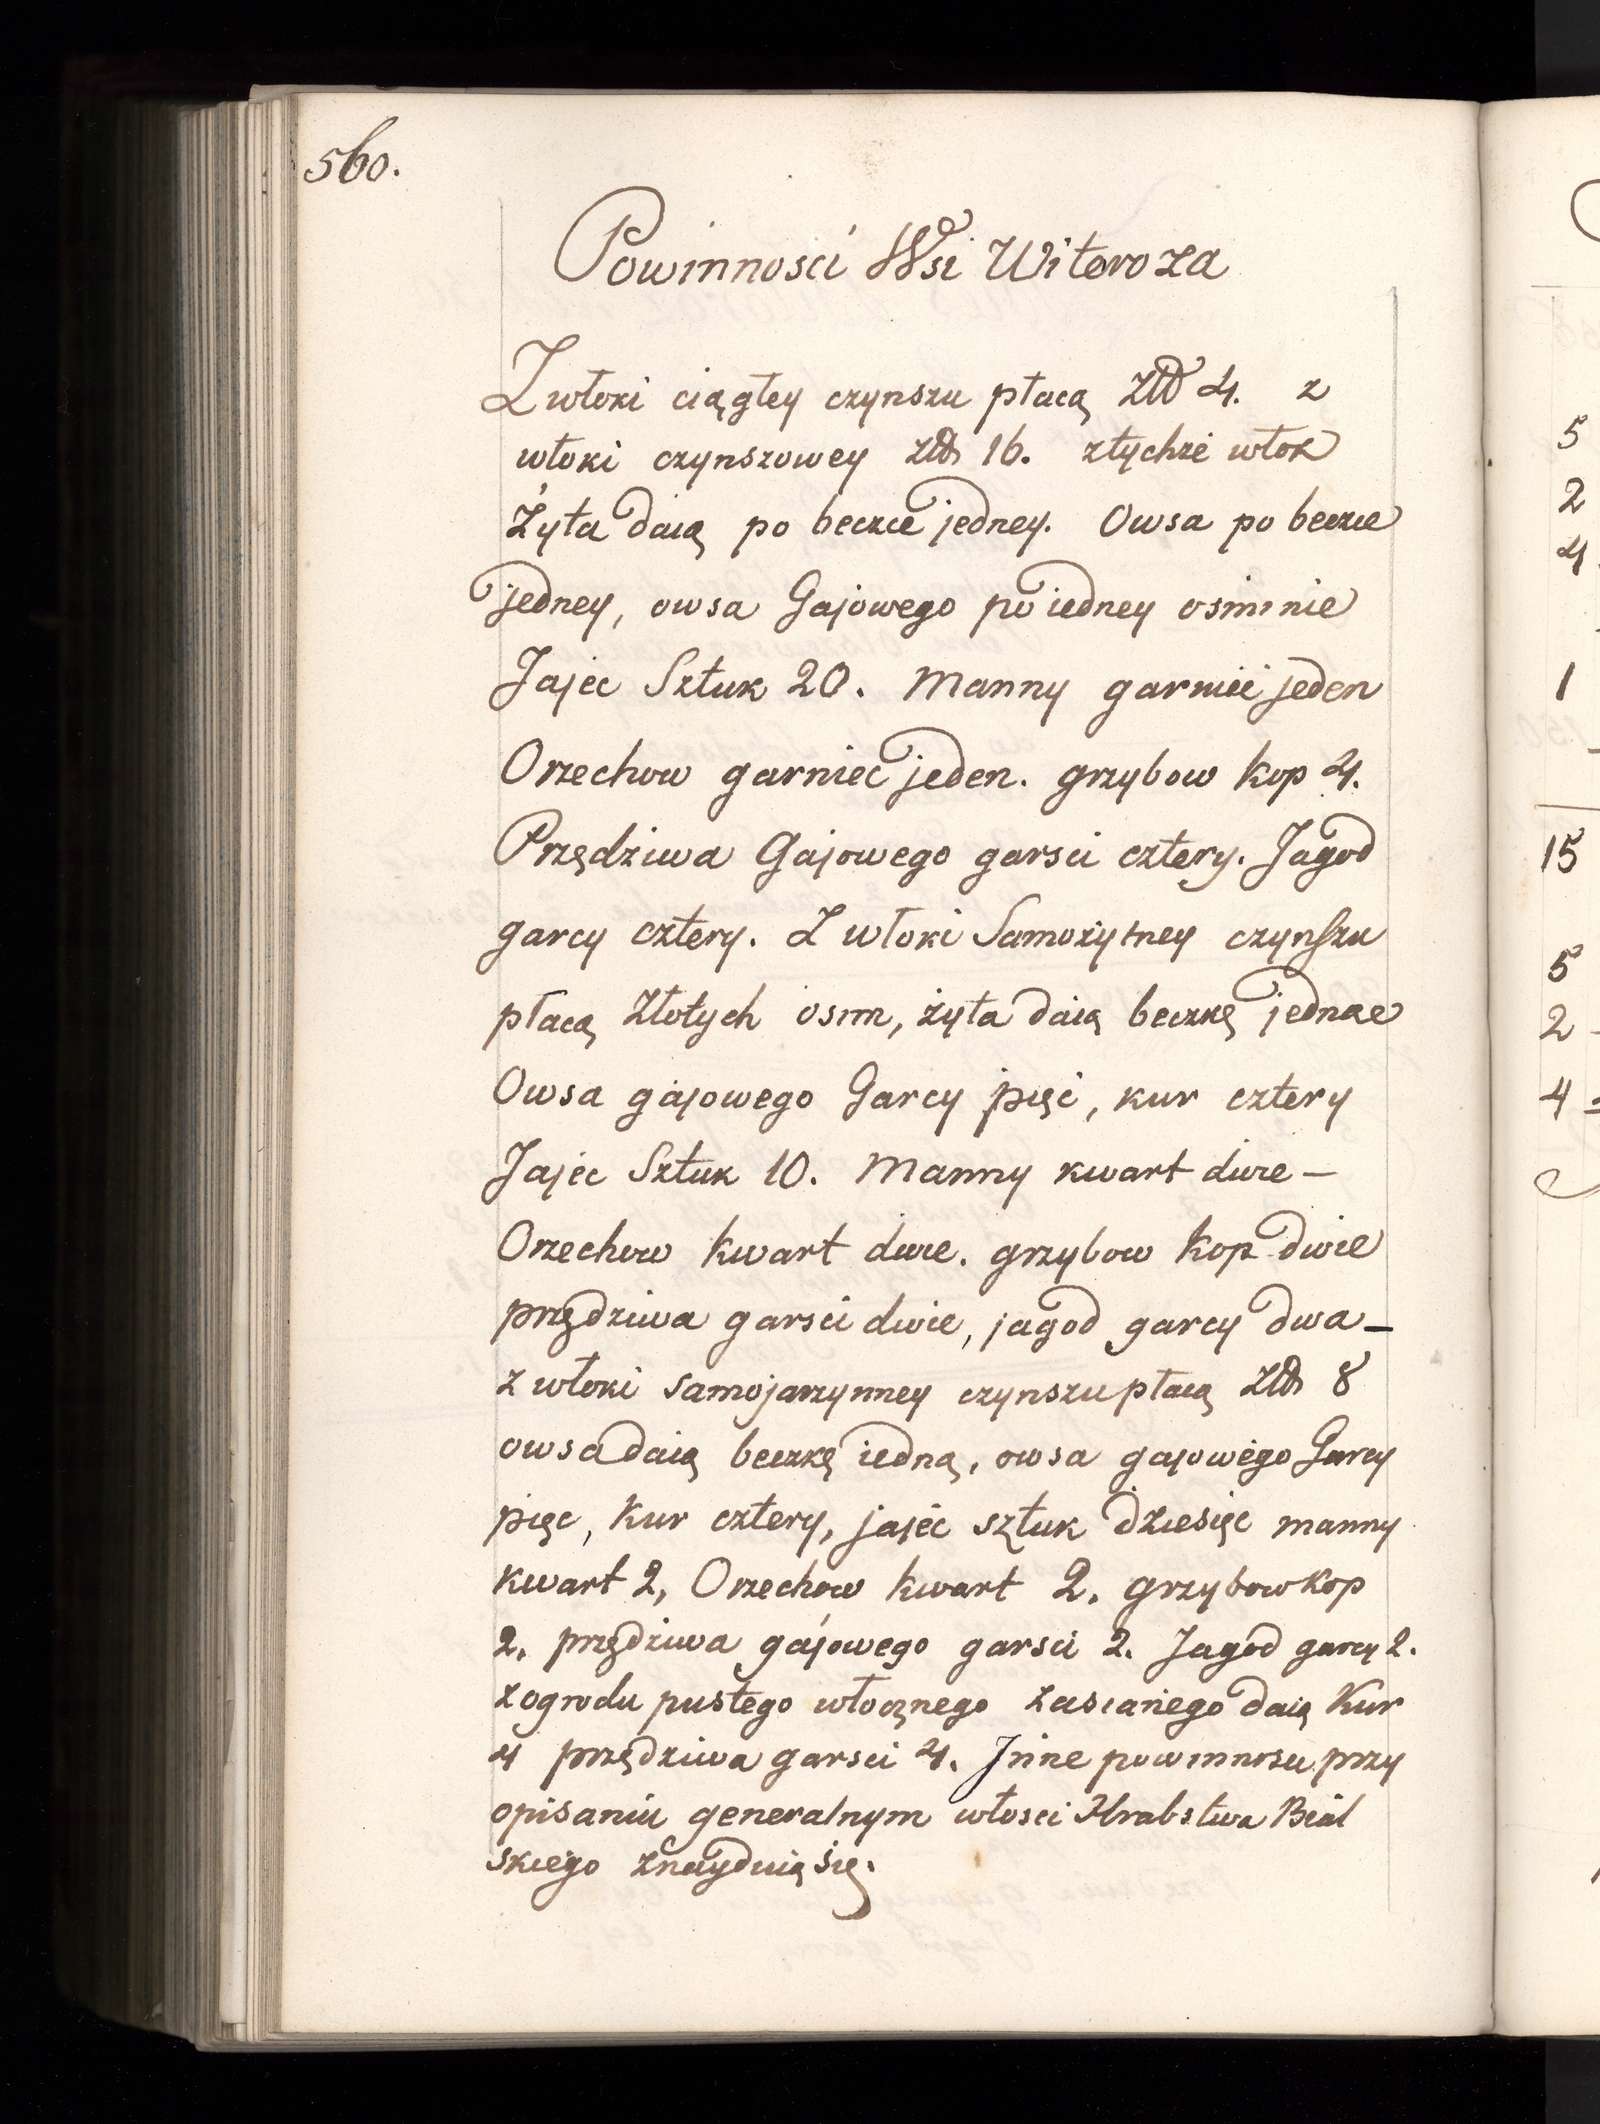 560.
Powinnosci Wsi Witoroza
Z włoki ciągłey czynszu płacą Złł 4. z
włoki czynszowey złł 16. z tychże włok
Żyta daią po beczce jedney. Owsa po beczce
jedney, owsa Gajowego po iedney osminie
Jajec Sztuk 20. Manny garniec jeden
Orzechow garniec jeden. grzybow kop 4.
Przędziwa Gajowego garsci cztery. Jagod
garcy cztery. Z włoki Samożytney czynszu
płacą Złotych osm, żyta daią beczkę jednae
Owsa gajowego Garcy pięc, kur cztery
Jajec Sztuk 10. Manny kwart dwie –
Orzechow kwart dwie. grzybow kop dwie
przędziwa garsci dwie, jagod garcy dwa –
z włoki samojarzynney czynszu płacą złł 8
owsa daią beczkę iedną, owsa gajowego Garcy
pięc, kur cztery, jajec sztuk dziesięc manny
kwart 2, Orzechow kwart 2. grzybow kop
2. przędziwa gajowego garsci 2. Jagod garcy 2.
z ogrodu pustego włocznego zasianego daią Kur
4 przędziwa garsci 4. Jnne powinnosci przy
opisaniu generalnym włosci Hrabstwa Bial
skiego znaydują się.
5
2
4
1
15
5
2
4